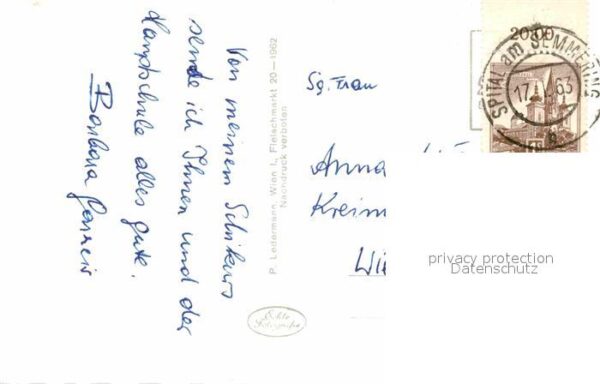 Von meinem Schikurs
sende ich Ihnen und der
Hauptschule alles gute.
Barbara
P. Ledermann, Wien I., Fleischmarkt 20 — 1962
Nachdruck verboten
Echte
Sg. Frau
Anna
Kreim
Wi
20.00
SPITAL am SEMMERING
17. 63
a
privacy protection
Datenschutz